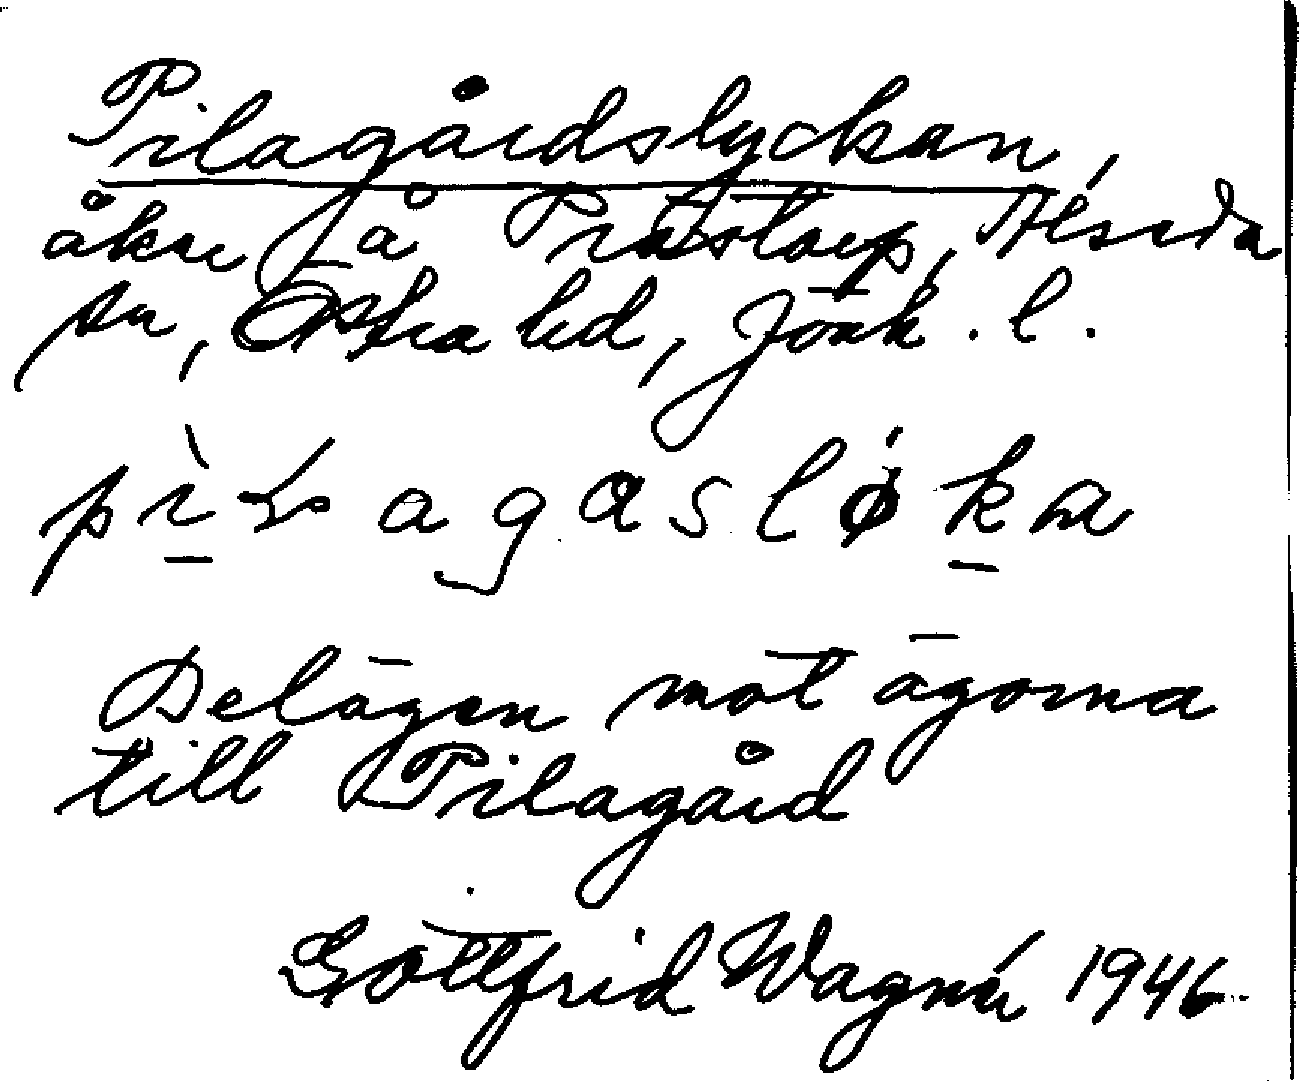 Pilagårdslyckan,
åker på Prästtorp, Alseda
sn, Östra hd, Jönk. l.
Belägen mot ägorna
till Pilagård
Gottfrid Wagnér 1946